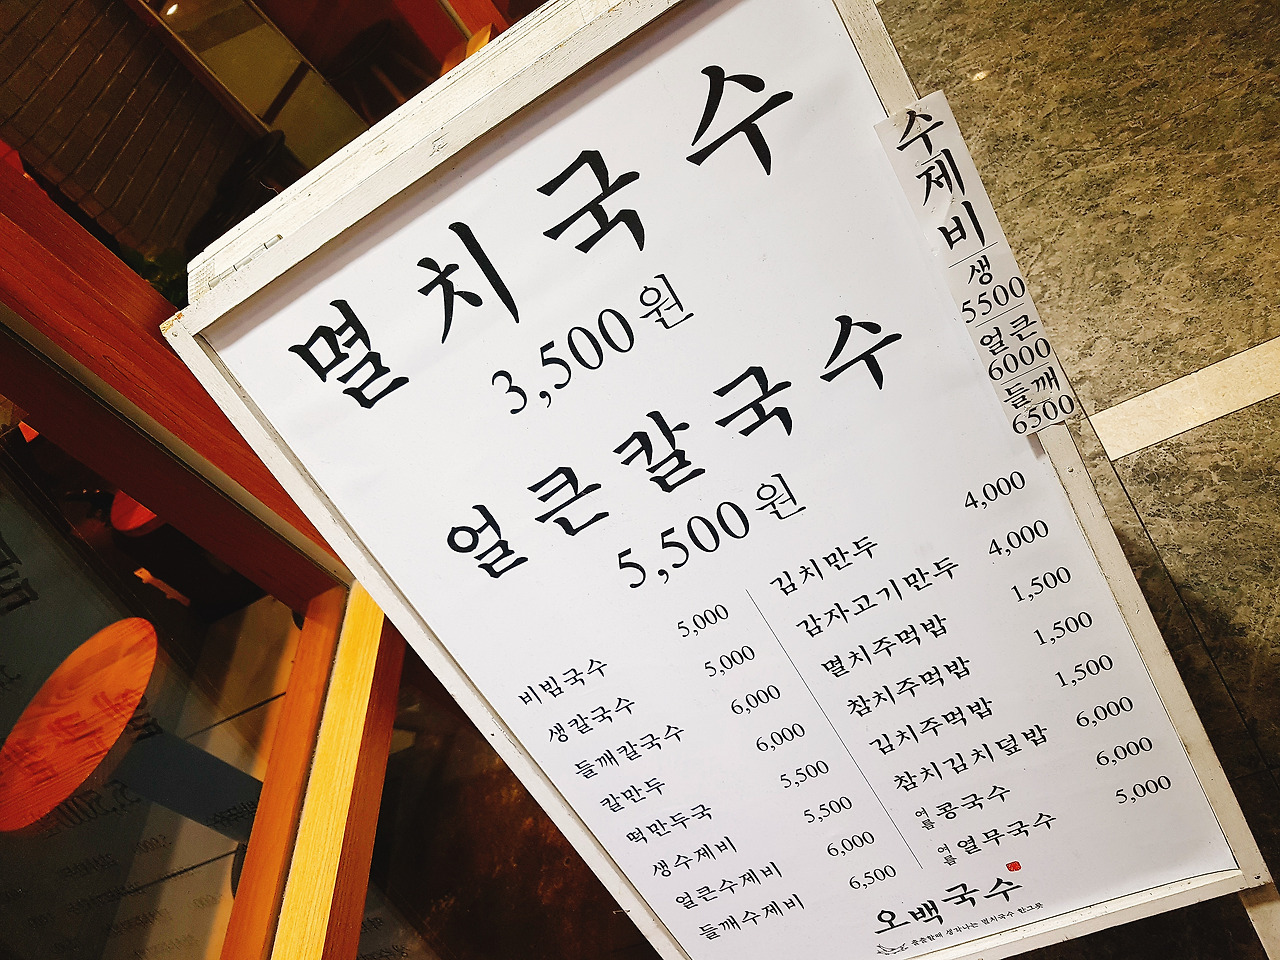 멸치국수
3,500원
얼큰칼국수
5,500원
비빔국수 5,000
생칼국수 5,000
들깨칼국수 6,000
칼만두 6,000
떡만두국 5,500
생수제비 5,500
얼큰수제비 6,000
들깨수제비 6,500
김치만두 4,000
감자고기만두 4,000
멸치주먹밥 1,500
참치주먹밥 1,500
김치주먹밥 1,500
참치김치덮밥 6,000
여름 콩국수 6,000
여름 열무국수 5,000
오백국수
출출할때 생각나는 멸치국수 한그릇
수제비
생
5500
얼큰
6000
들깨
6500